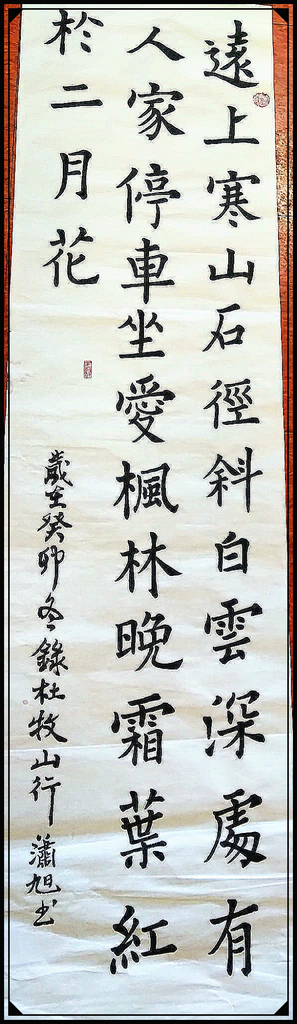 遠上寒山石徑斜白雲深處有
人家停車坐愛楓林晚霜葉紅
於二月花
歲在癸卯冬錄杜牧山行瀟旭書